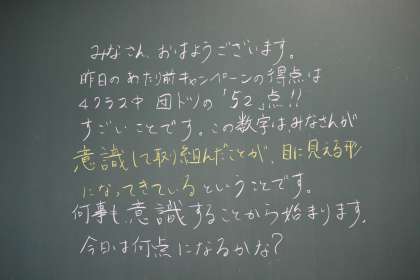 みなさん、おはようございます。
昨日のあたり前キャンペーンの得点は
4クラス中 団トツの「52」点!!
すごいことです。この数字は、みなさんが
意識して取り組んだことが、目に見える形
になってきているということです。
何事も意識することから始まります。
今日は何点になるかな?